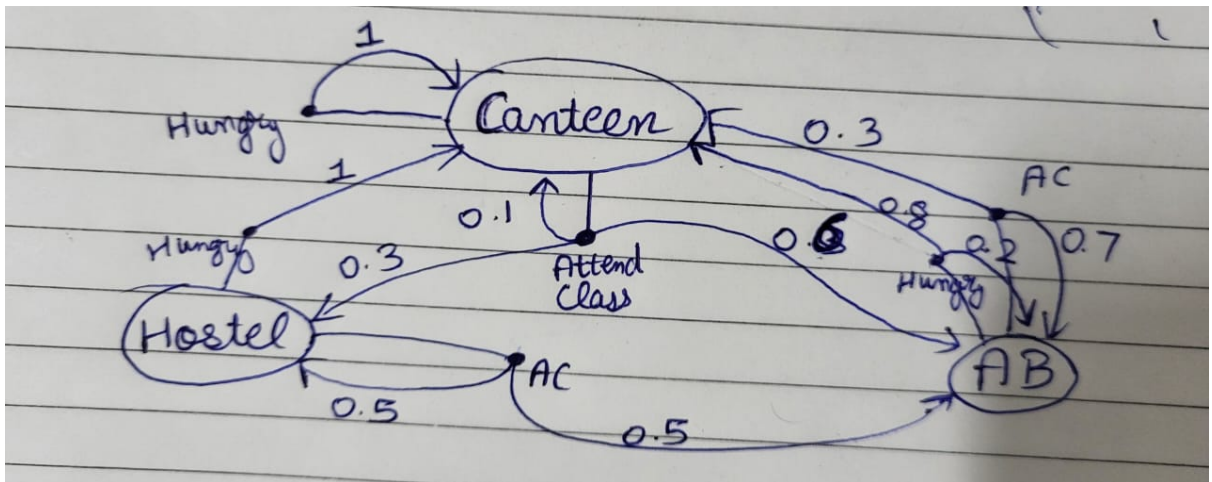 1
Hungry
Canteen
0.3
AC
1
0.1
0.8
Hungry
0.3
Attend
Class
0.6
0.2
0.7
Hungry
Hostel
AC
AB
0.5
0.5